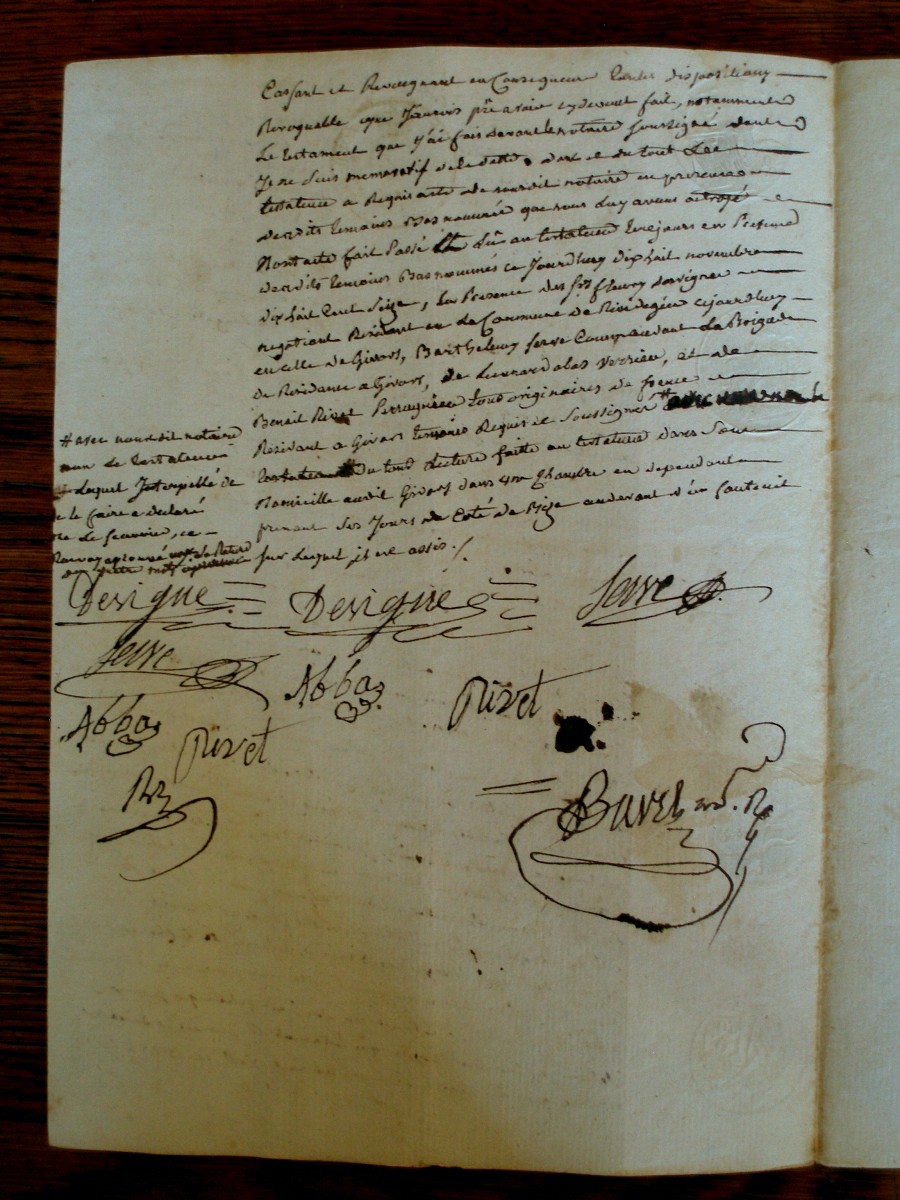 Casfant et Revoqnant en Consequence toutes dispositions
Revoquable que J'aurois pû avoir cy devant fait, notamment
Le testament que J'ai fais devant le notaire soussigné dont
Je ne suis memoratif de la datte, dont et du tout Led
testateur a Requis acte de nousdit notaire en presence
desdits temoins Bas nommés que nous Luy avons octroyé
Dont acte fait Passé Lû au testateur toujours en Presence
desdits temoins Bas nommés ce Jourdhuy dixhuit novembre
dix huit Cent Seize, En Presence des srs fleury Desvigne
negotiant Résidant en La Commune de Rivedegier cejourdhuy
en celle de Givors, Barthelemy Serve Commandant La Brigade
de Résidance a Givors, de Leonard abas Verrier, et de
Benoit Rivet Perruquier tous originaires de france
Résidant a Givors temoins Requis et Soussignés #
du tout Lecture faitte au testateur dans Son
Domicille audit Givors dans une Chambre en dependant
prenant Ses Jours du Coté de Bize audevant d'un fauteuil
Sur Lequel il est assis ./.
# avec nousdit notaire
non Le testateur
Lequel Interpellé de
le faire a declaré
ne Le Scavoir, ce
Renvoy aprouvé
quatre mots
Desvigne Desvigne Serve
Serve
Abbas Abbas Rivet
Rivet